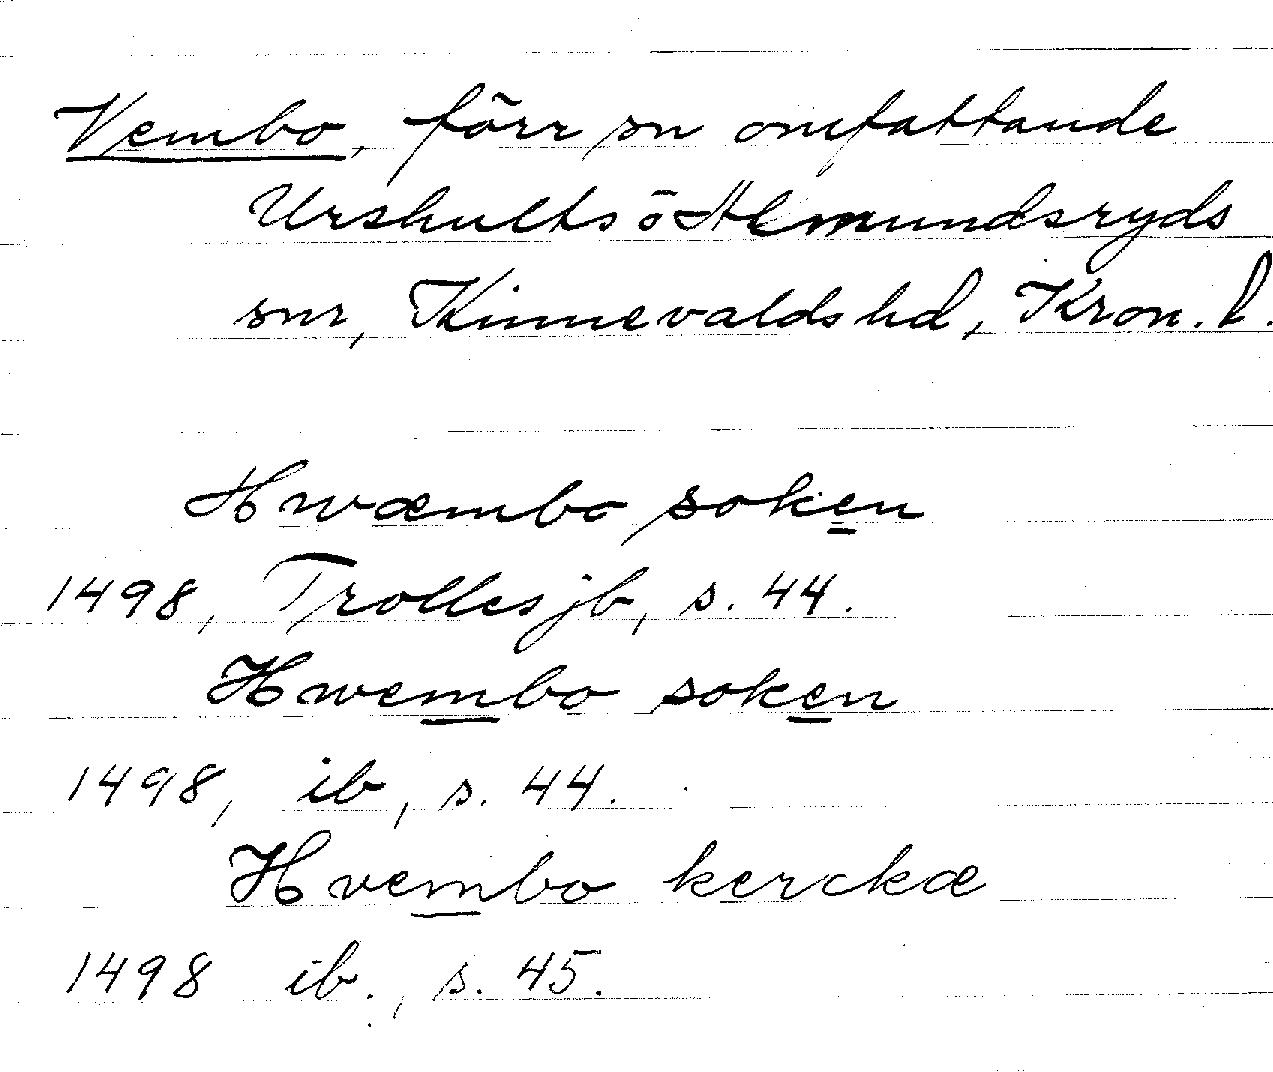 Vembo, förr sn omfattande
Urshults o Almundsryds
snr, Kinnevalds hd, Kron. l.
Hwæmbo soken
1498, Trolles jb, s. 44.
Hwembo soken
1498, ib, s. 44.
Hvembo kerckæ
1498 ib., s. 45.